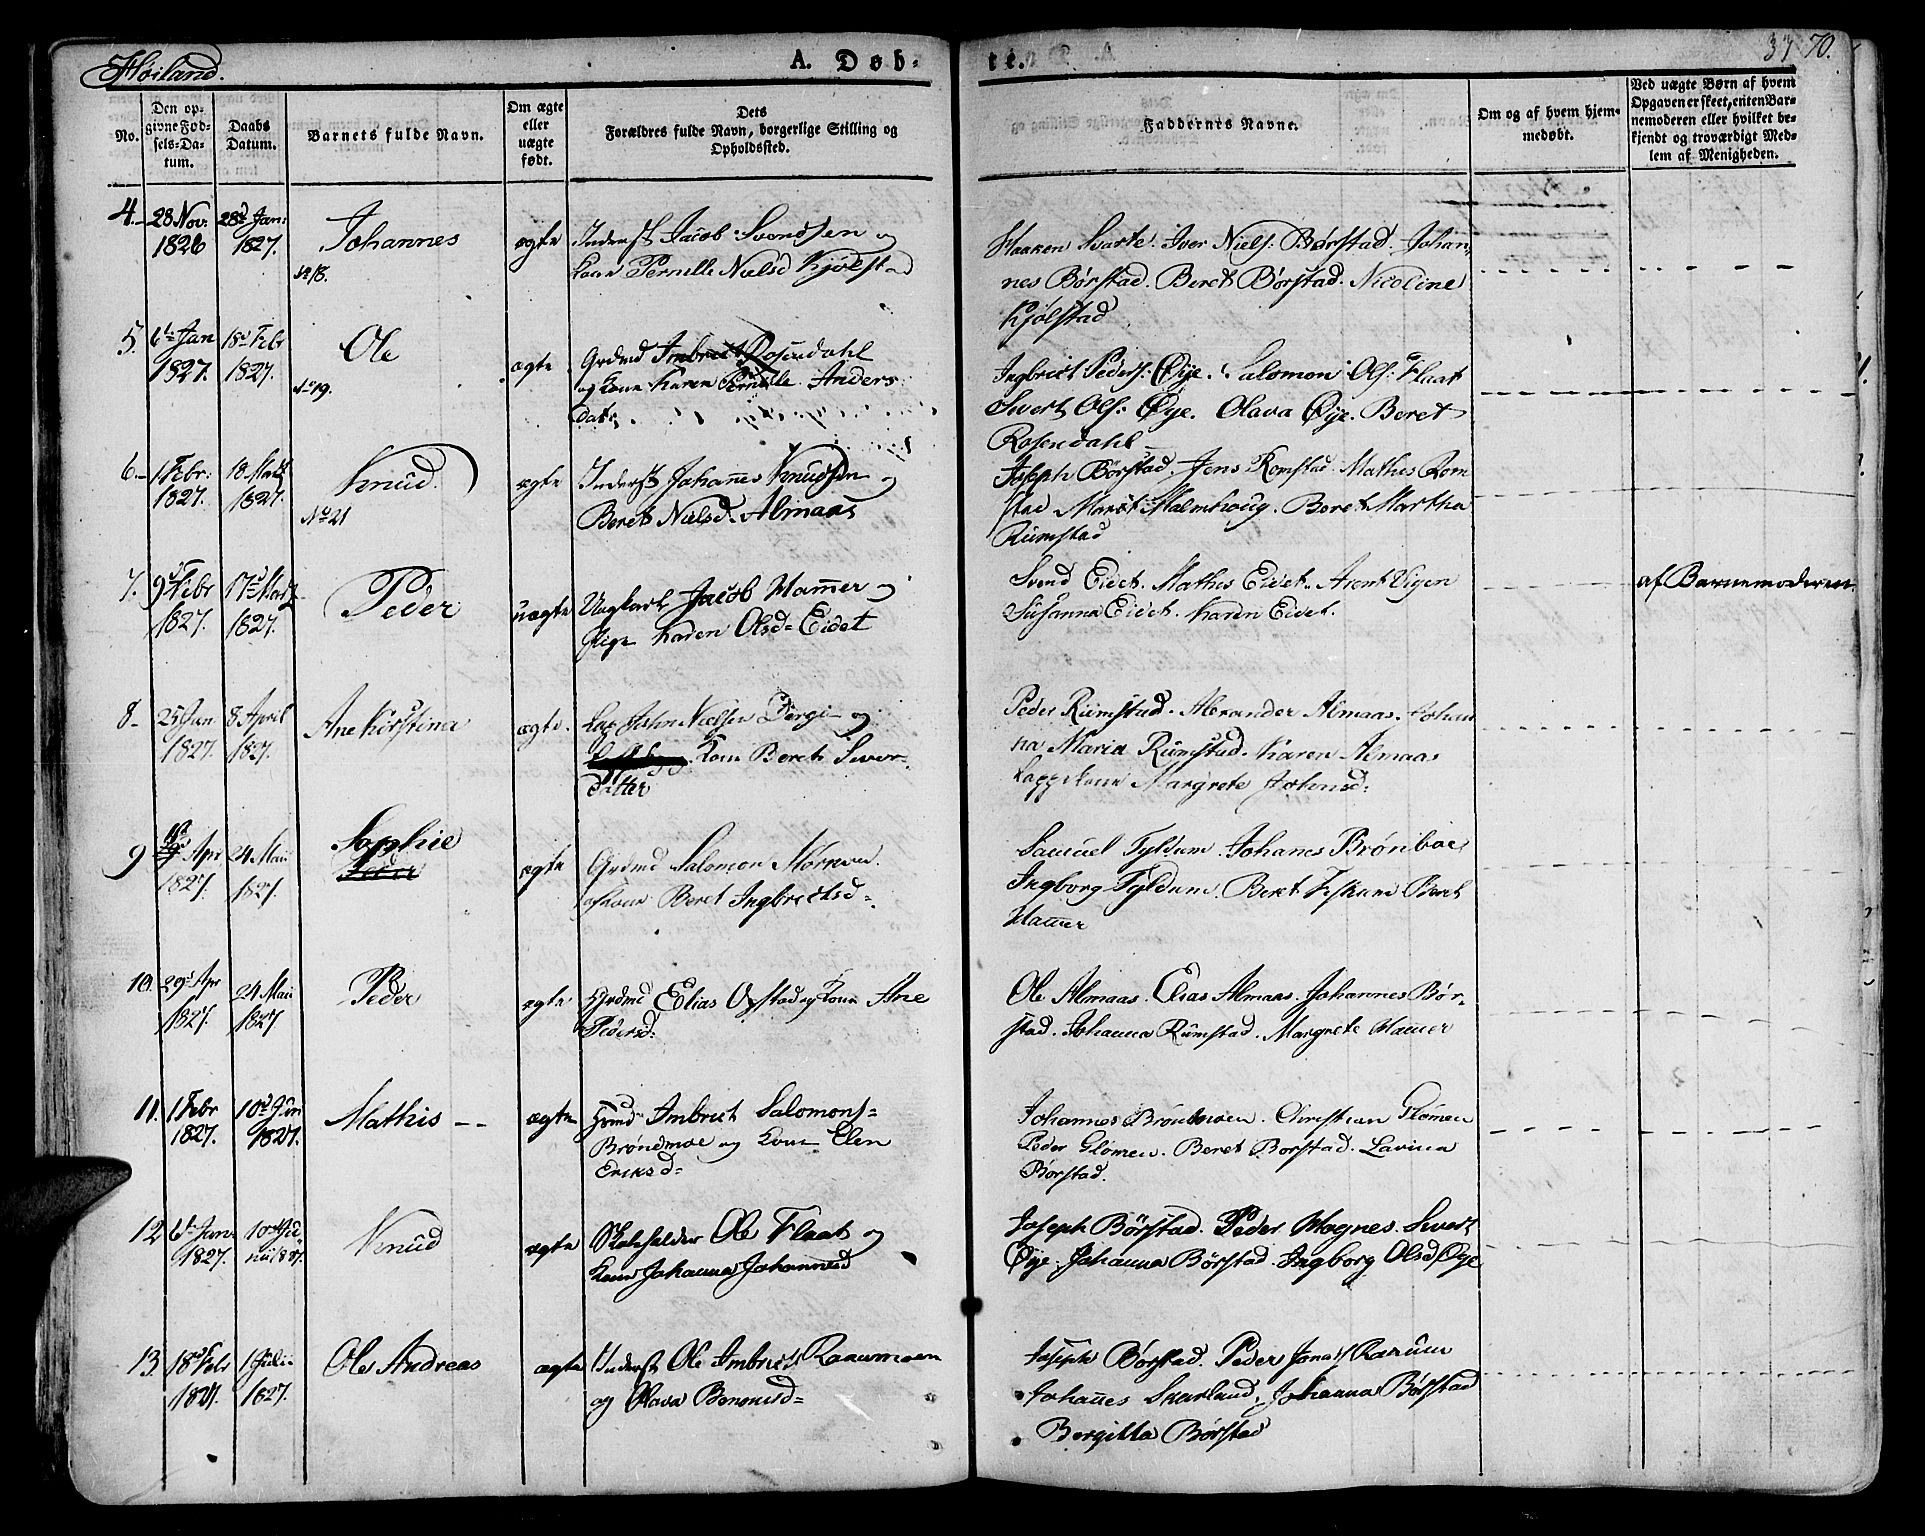 Høiland.
A. Døb-
te.
37 70.
No.
Den op-
givne Fød-
sels-Da-
tum.
Daabs
Datum.
Barnets fulde Navn.
Om ægte
eller
uægte
født.
Dets
Forældres fulde Navn, borgerlige Stilling og
Opholdssted.
Faddernes Navne.
Om og af hvem hjem-
medøbt.
Ved uægte Børn af hvem
Opgaven er skeet, enten Bar-
nemoderen eller hvilket be-
kjendt og troværdigt Med-
lem af Menigheden.
4.
28 Nov.
1826
28d Jan:
1827.
Johannes
No 18.
ægte
Inderst Jacob Svendsen og
Kone Pernille Nielsd Kjølstad
Haaken Svarte. Iver Niels. Børstad. Johan
nes Børstad. Beret Børstad. Nicoline
Kjølstad
5.
6te Jan
1827.
18d Febr
1827.
Ole
No 19.
ægte
Grdmd Imbrict Rosendahl
og Kone Karen Pernille Anders
datr
Ingbrict Peders. Øye. Salomon Ols. Flaat
Sivert Ols: Øye. Olava Øye. Beret
Rosendahl
6
1 Febr.
1827.
18 Martz
1827.
Knud.
No 21
ægte
Inderst Johannes Knudsen og
Beret Nielsd. Almaas
Joseph Børstad. Jens Romstad. Mathis Rom
stad Marit Malmhoug. Beret Martha
Rümstad
7.
9d Febr
1827.
17d Martz
1827.
Peder
uægte
Ungkarl Jacob Hammer og
Pige Karen Olsd= Eidet
Svend Eidet. Mathis Eidet. Arent Vigen
Susanna Eidet. Karen Eidet.
af Barnemoderen.
8
25 Jan
1827.
8 April
1827.
Ane Kirstina
ægte.
Lap John Nielsen Dergi og
Kone Beret Siver-
datter
Peder Rümstad. Alexander Almaas. Johan
na Maria Rümstad. Karen Almaas
Lappekone Margrete Johnsd:
9
Apr
1827.
24 Maii
1827.
Sophie
ægte
Grdmd Salomon Mörkved
og Kone Beret Ingbrictsd=
Samuel Fyldum. Johanes Brönboe
Ingborg Fyldum. Beret Fiskum Beret
Hammer
10.
29d Apr
1827.
24 Maii
1827
Peder
ægte
Grdmd Elias Opstad og Kone Ane
Pedersd:
Ole Almaas. Elias Almaas. Johannes Bör-
stad. Johanna Rümstad. Margrete Hammer
11.
1 Febr
1827.
10d Jun
1827.
Mathis
ægte
Grmd Imbrict Salomons=
Brøndmoe og Kone Elen
Eriksd=
Johannes Bröndmoen. Christian Glömen
Peder Glömen. Beret Borstad. Lavina
Børstad.
12
6te Jan
1827.
10d Ju
nii 1827.
Knüd
ægte
Skoleholder Ole Flaat og
Kone Johanna Johannesd
Joseph Børstad. Peder Mognes. Sivert
Øye. Johanna Børstad. Ingborg Olsd Øye
13.
18d Febr
1827.
1 Julii
1827.
Ole Andreas
ægte
Inderst Ole Imbrics Raanmoen
og Olava Benonisd=
Joseph Børstad. Peder Jonas Rarum
Johannes Skarland. Johanna Børstad
Bergitta Børstad